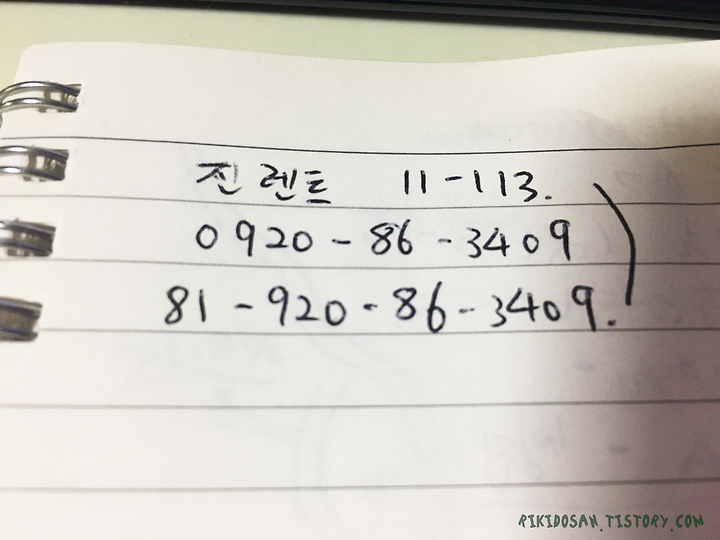 진 렌트 11-113.
0920-86-3409
81-920-86-3409.
RIKIDOSAN.TISTORY.COM